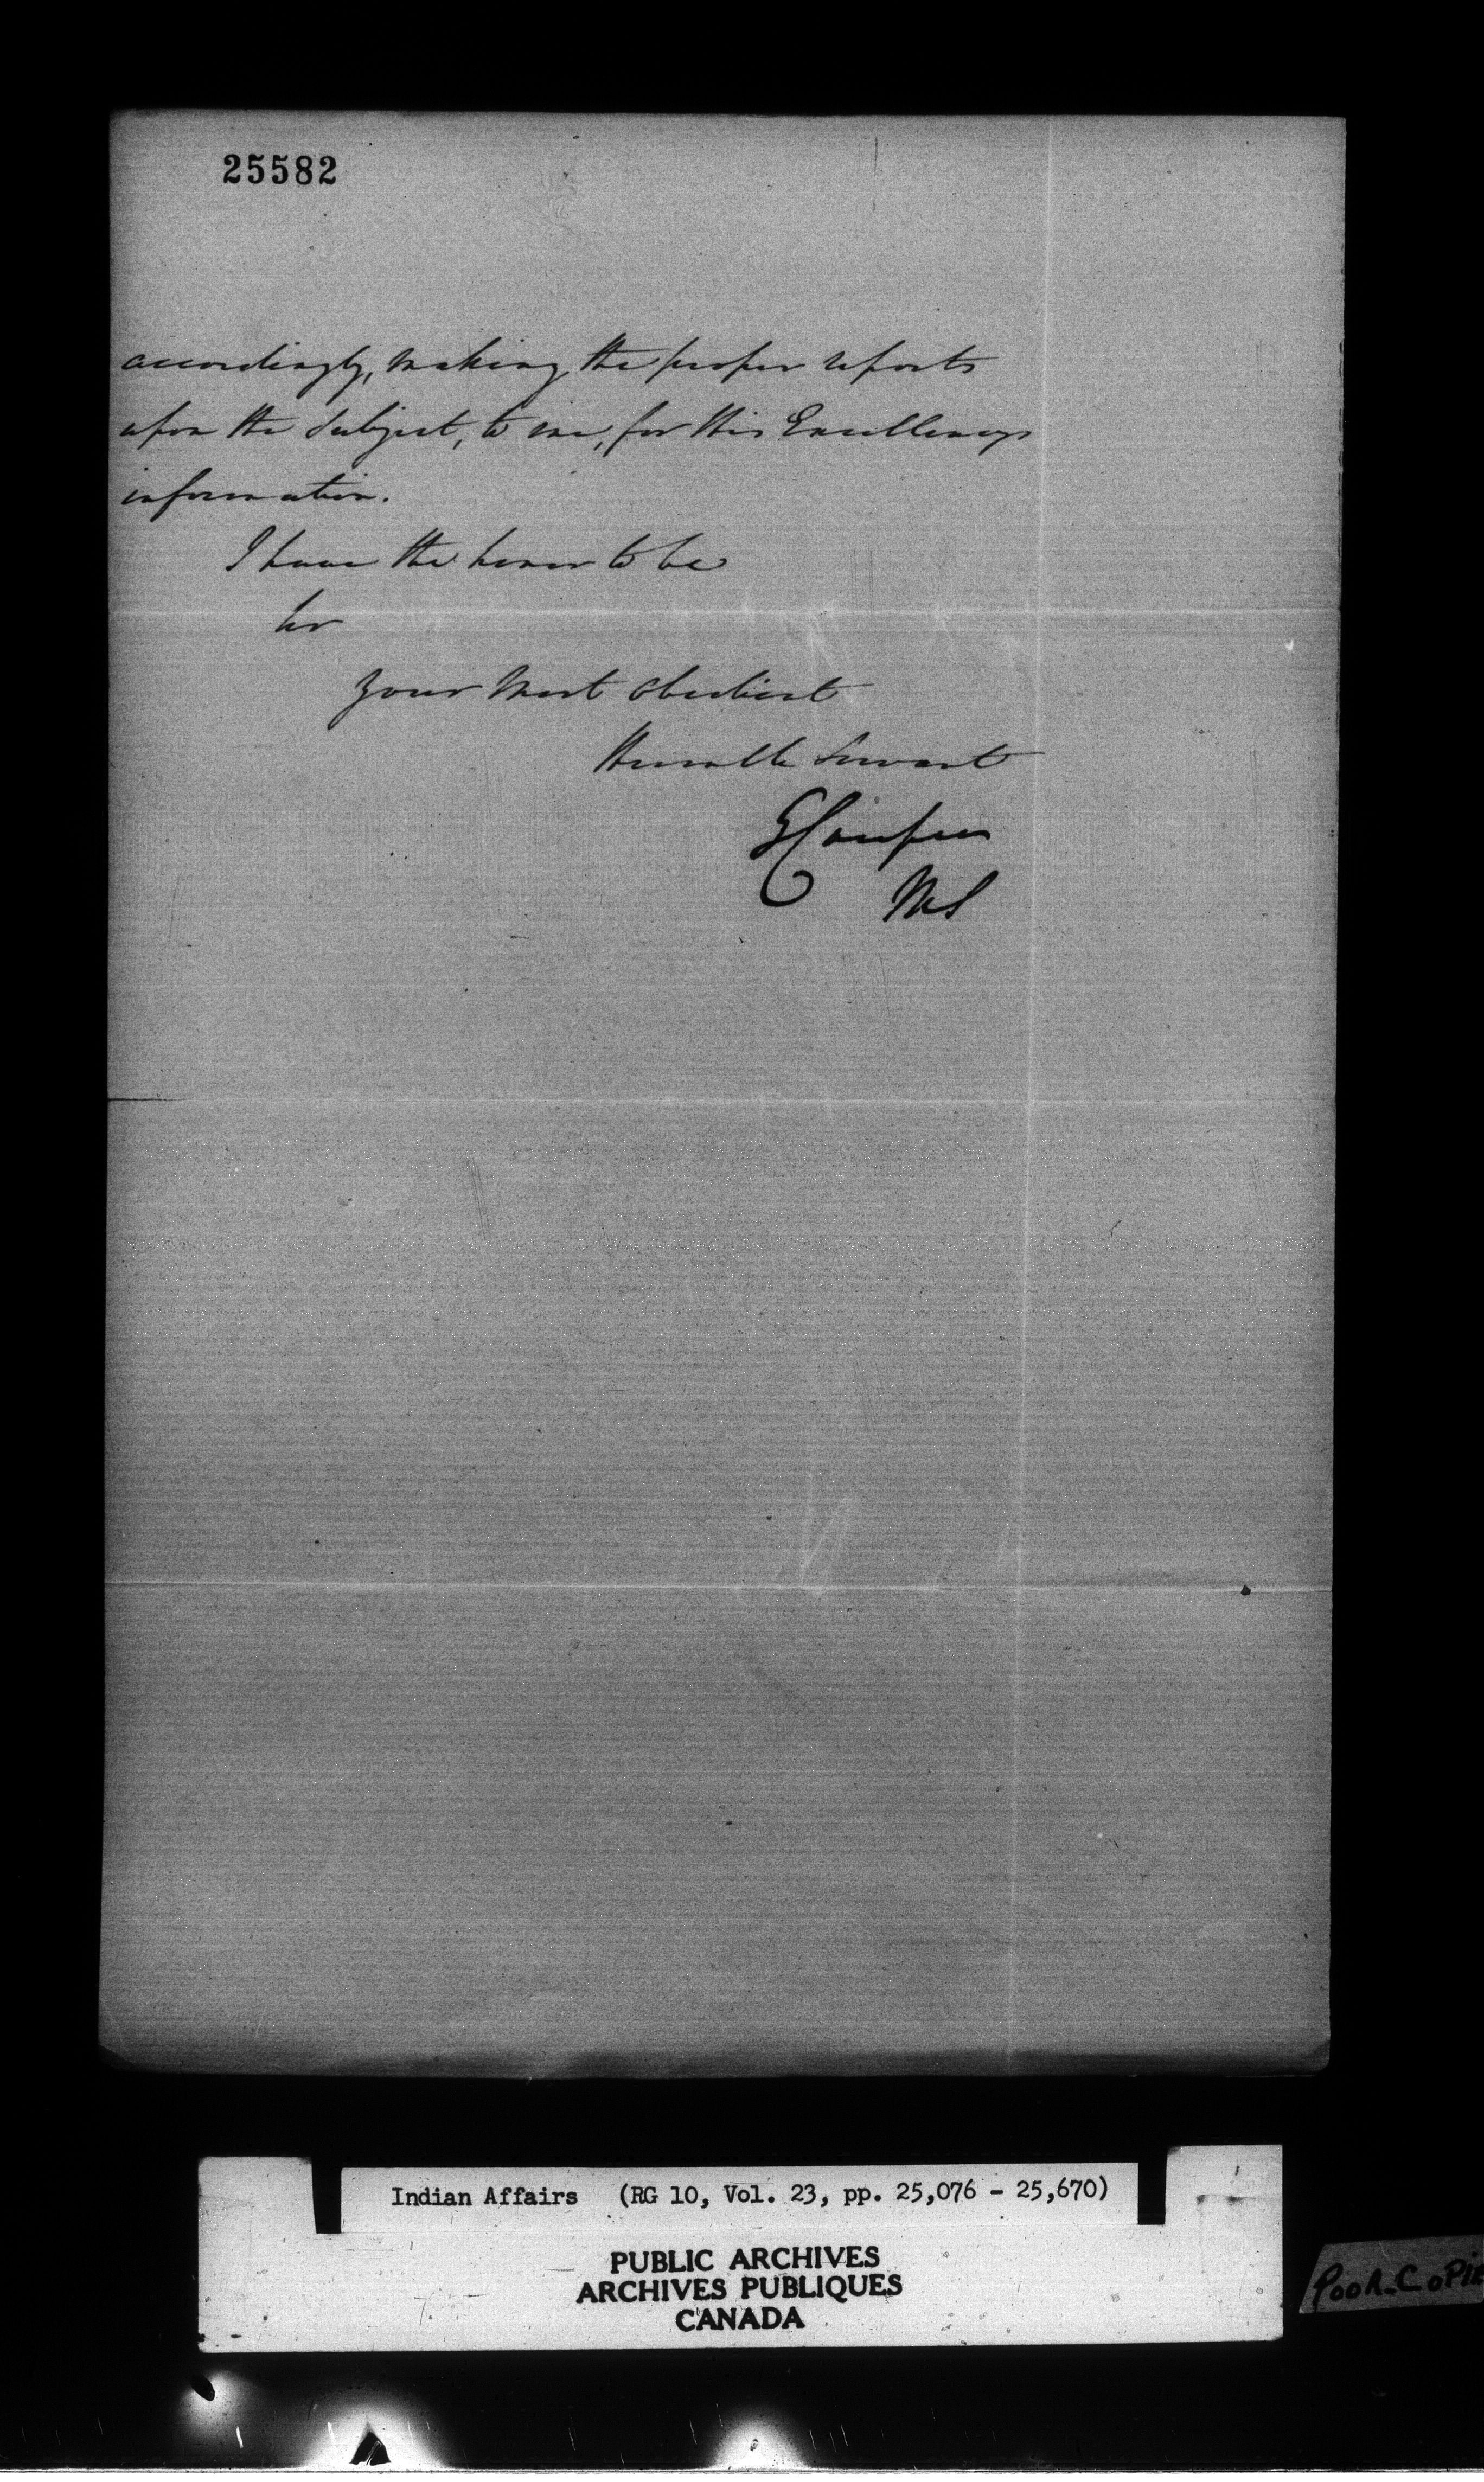 25582
accordingly, making the proper reports
upon the Subject, to me, for His Excellencys
information.
I have the honor to be
Sir
Your Most Obedient
Humble Servant
MS
Indian Affairs (RG 10, Vol. 23, pp. 25,076 - 25,670)
PUBLIC ARCHIVES
ARCHIVES PUBLIQUES
CANADA
POOR-COPIE